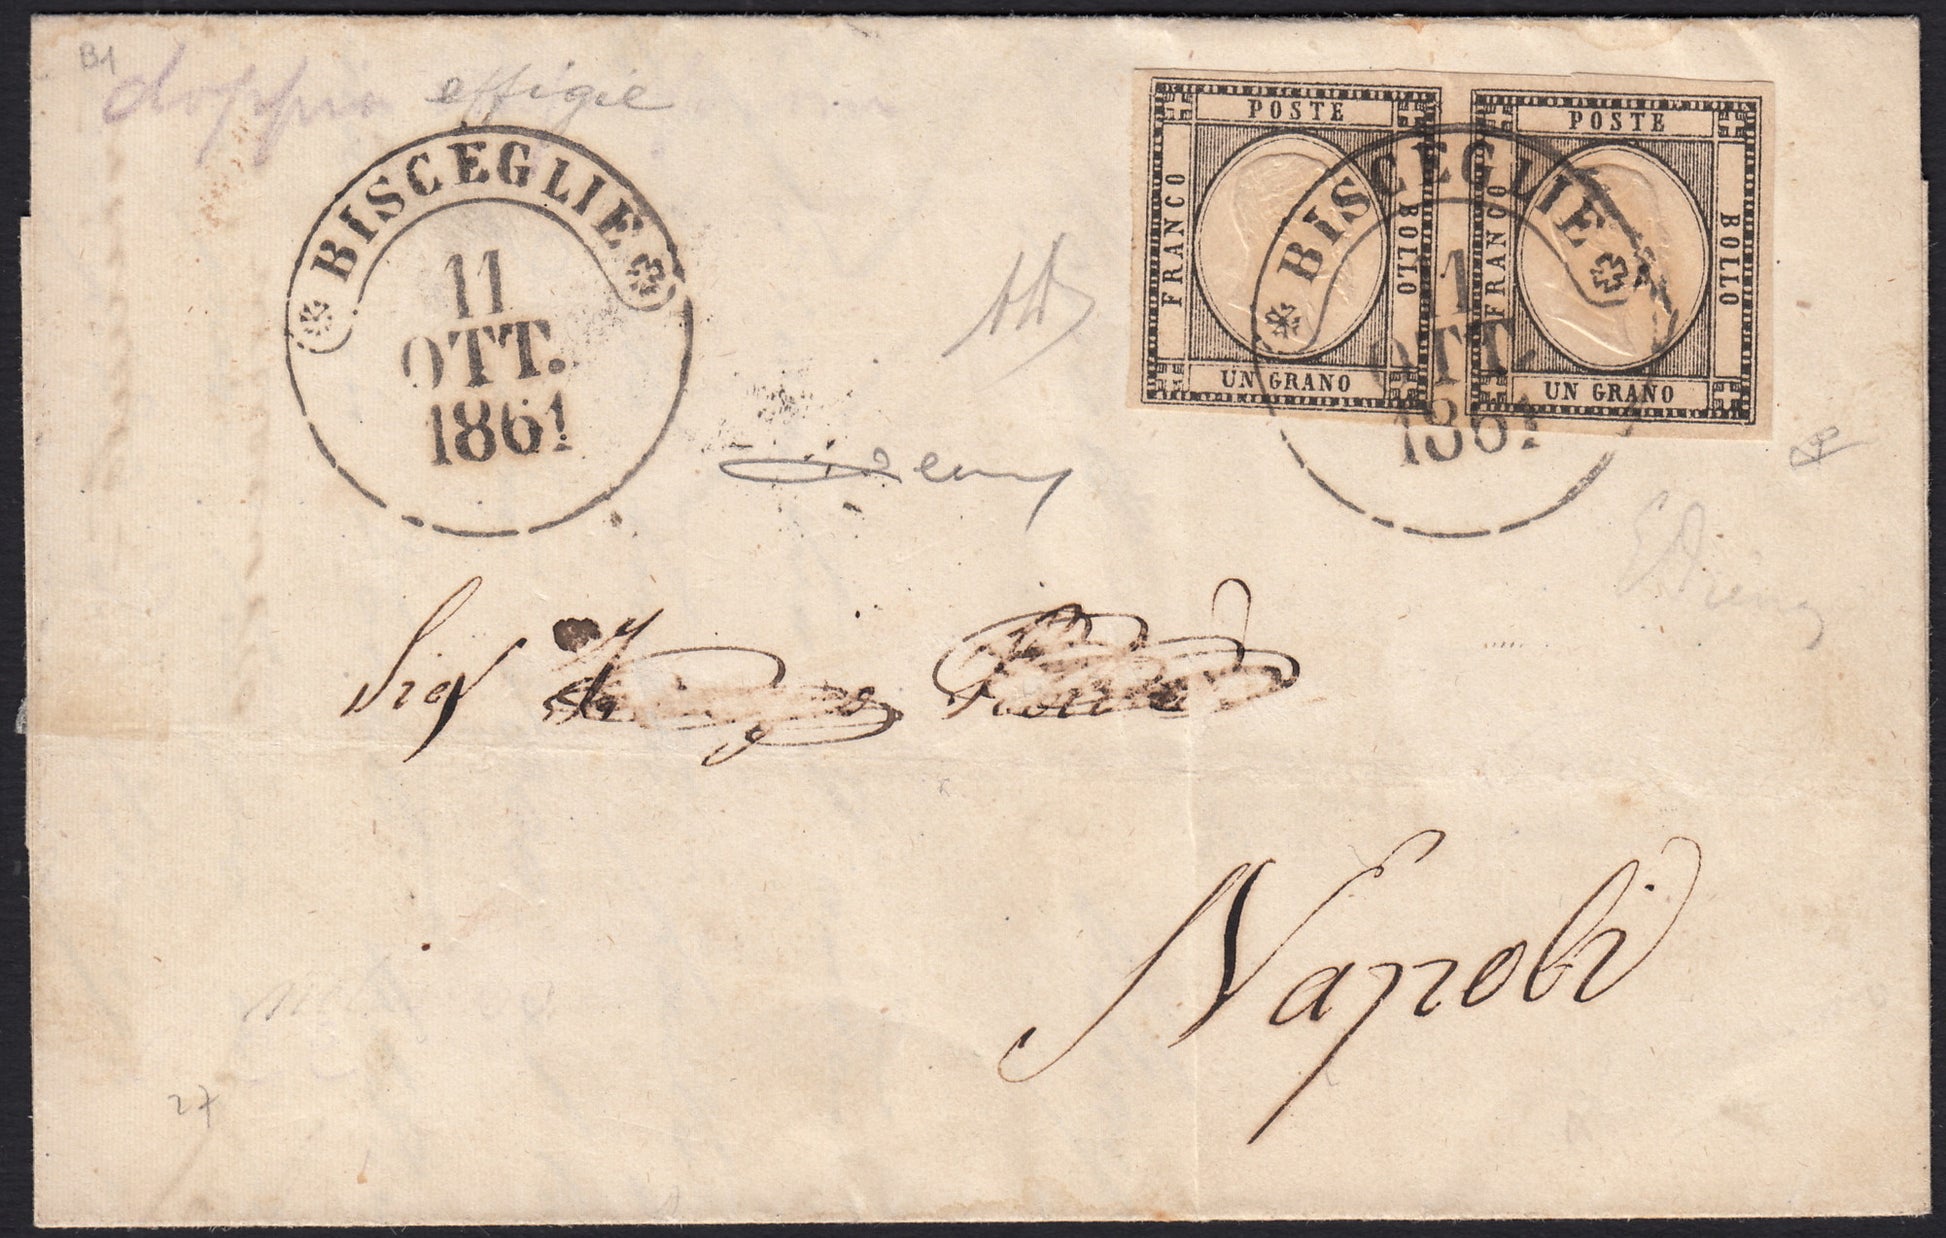 B1
doppia effigie
BISCEGLIE
11
OTT.
1861
POSTE
FRANCO
BOLLO
UN GRANO
POSTE
FRANCO
BOLLO
UN GRANO
BISCEGLIE
11
OTT.
1861
E. Diena
Sig
Napoli
27